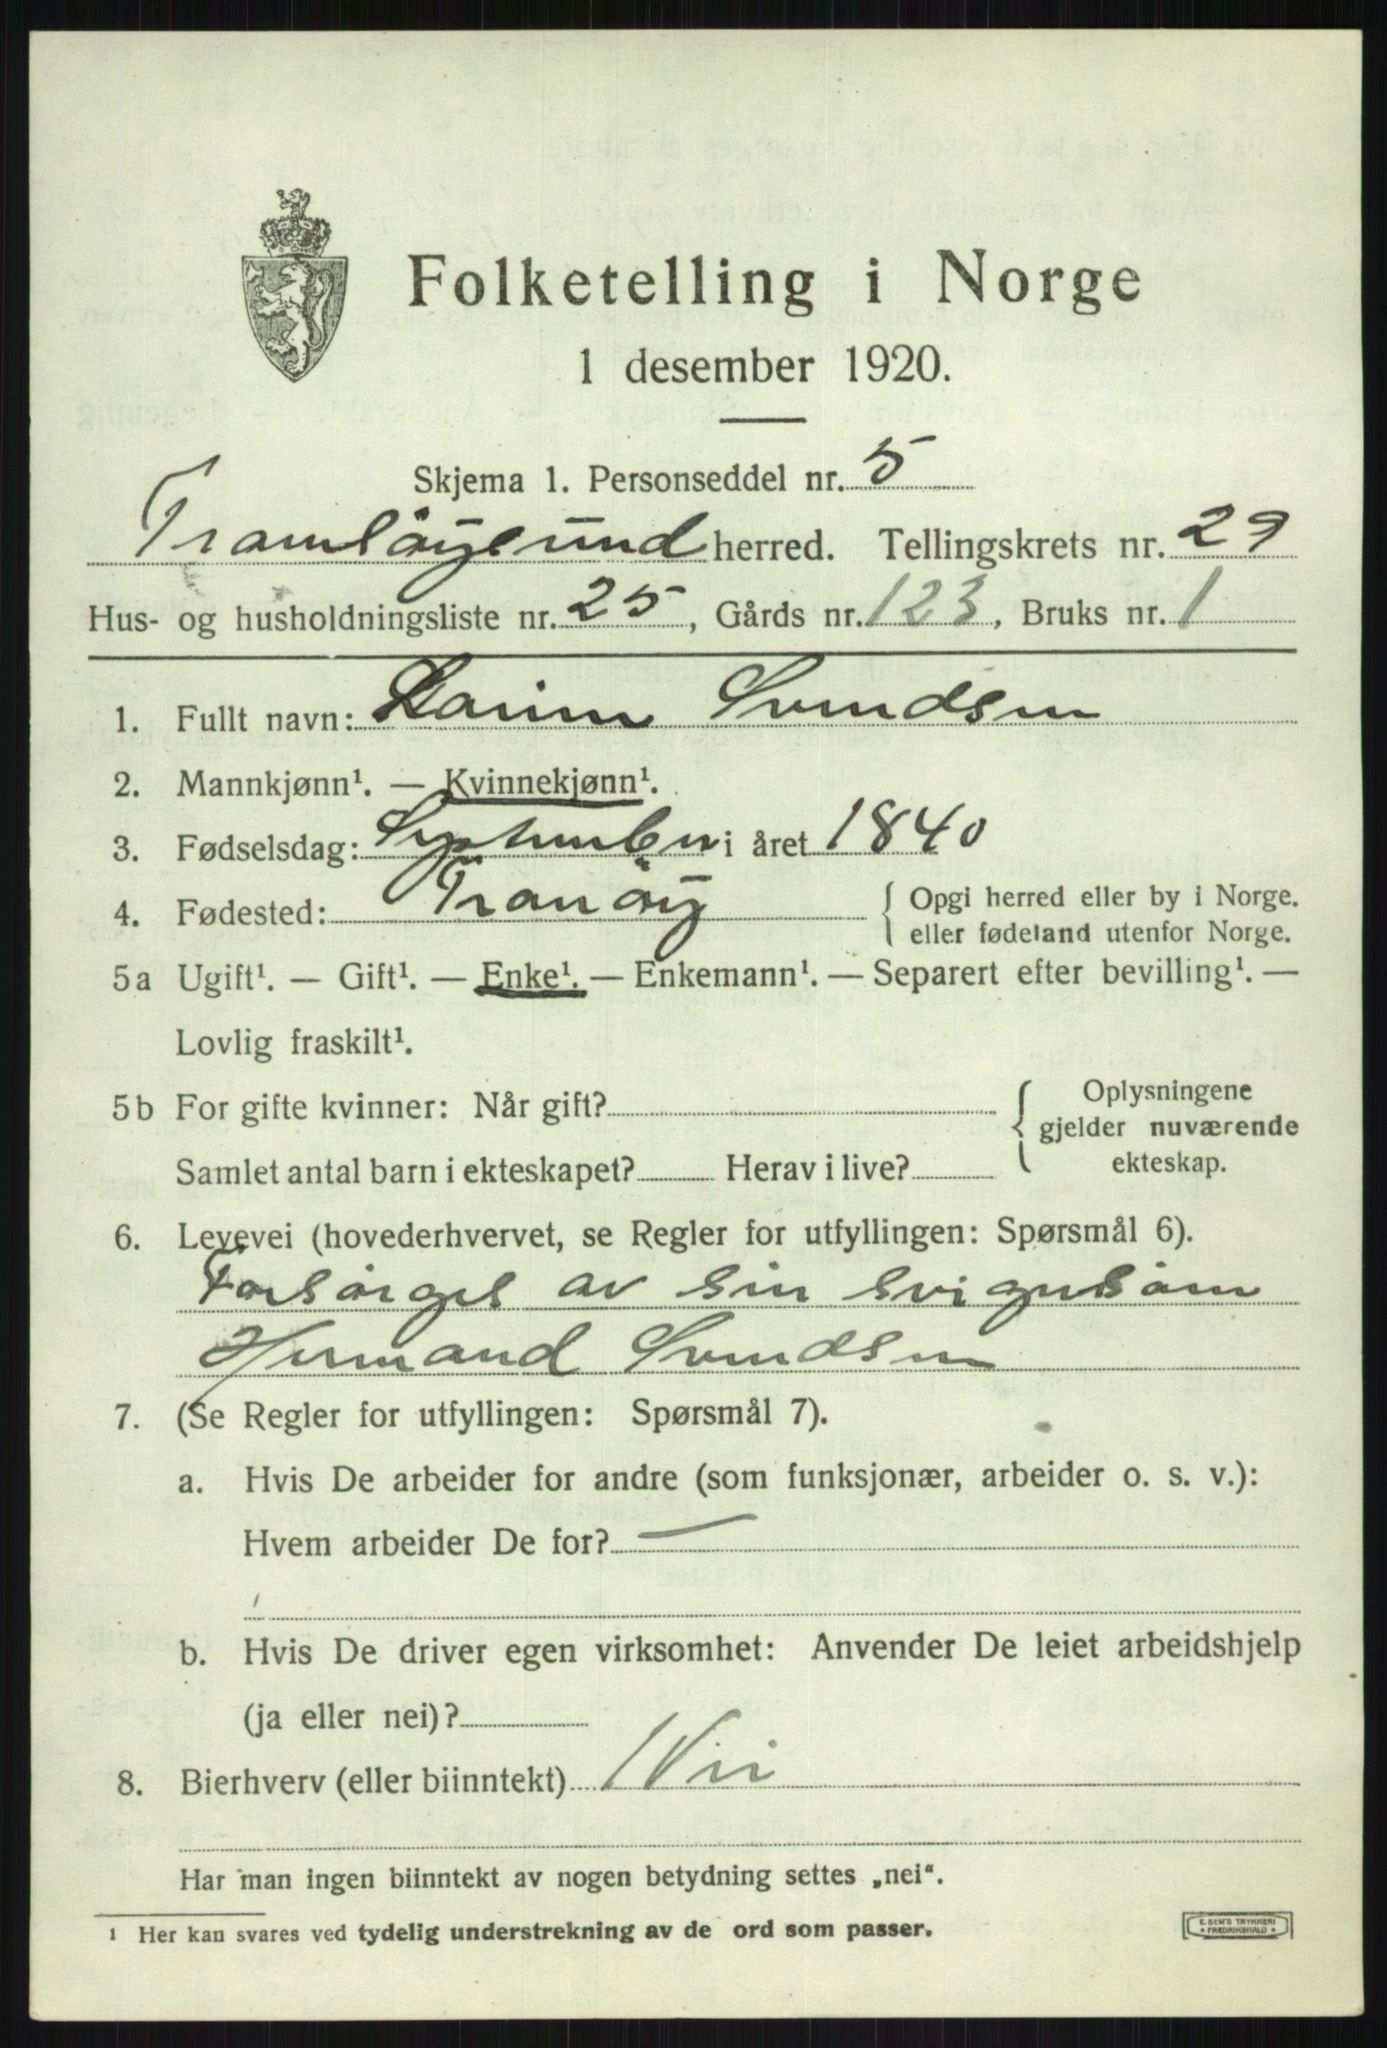 Folketelling i Norge
1 desember 1920.
Skjema 1. Personseddel nr. 5
Tromsöysund herred. Tellingskrets nr. 29
Hus- og husholdningsliste nr. 25, Gårds nr. 123, Bruks nr. 1
1. Fullt navn: Svendsen
2. Mannkjønn¹. — Kvinnekjønn¹.
3. Fødselsdag: September i året 1840
4. Fødested: Tranöy { Opgi herred eller by i Norge.
eller fødeland utenfor Norge.
5a Ugift¹. — Gift¹. — Enke¹. — Enkemann¹. — Separert efter bevilling¹. —
Lovlig fraskilt¹.
5b For gifte kvinner: Når gift? { Oplysningene
gjelder nuværende
Samlet antal barn i ekteskapet? Herav i live? ekteskap.
6. Levevei (hovederhvervet, se Regler for utfyllingen: Spørsmål 6).
Forsörges av sin svigersöm
Hermand Svendsen
7. (Se Regler for utfyllingen: Spørsmål 7).
a. Hvis De arbeider for andre (som funksjonær, arbeider o. s. v.):
Hvem arbeider De for? —
b. Hvis De driver egen virksomhet: Anvender De leiet arbeidshjelp
(ja eller nei)?
8. Bierhverv (eller biinntekt) Nei
Har man ingen biinntekt av nogen betydning settes „nei“.
¹ Her kan svares ved tydelig understrekning av de ord som passer.
E. SEM'S TRYKKERI
• FREDRIKSHALD •